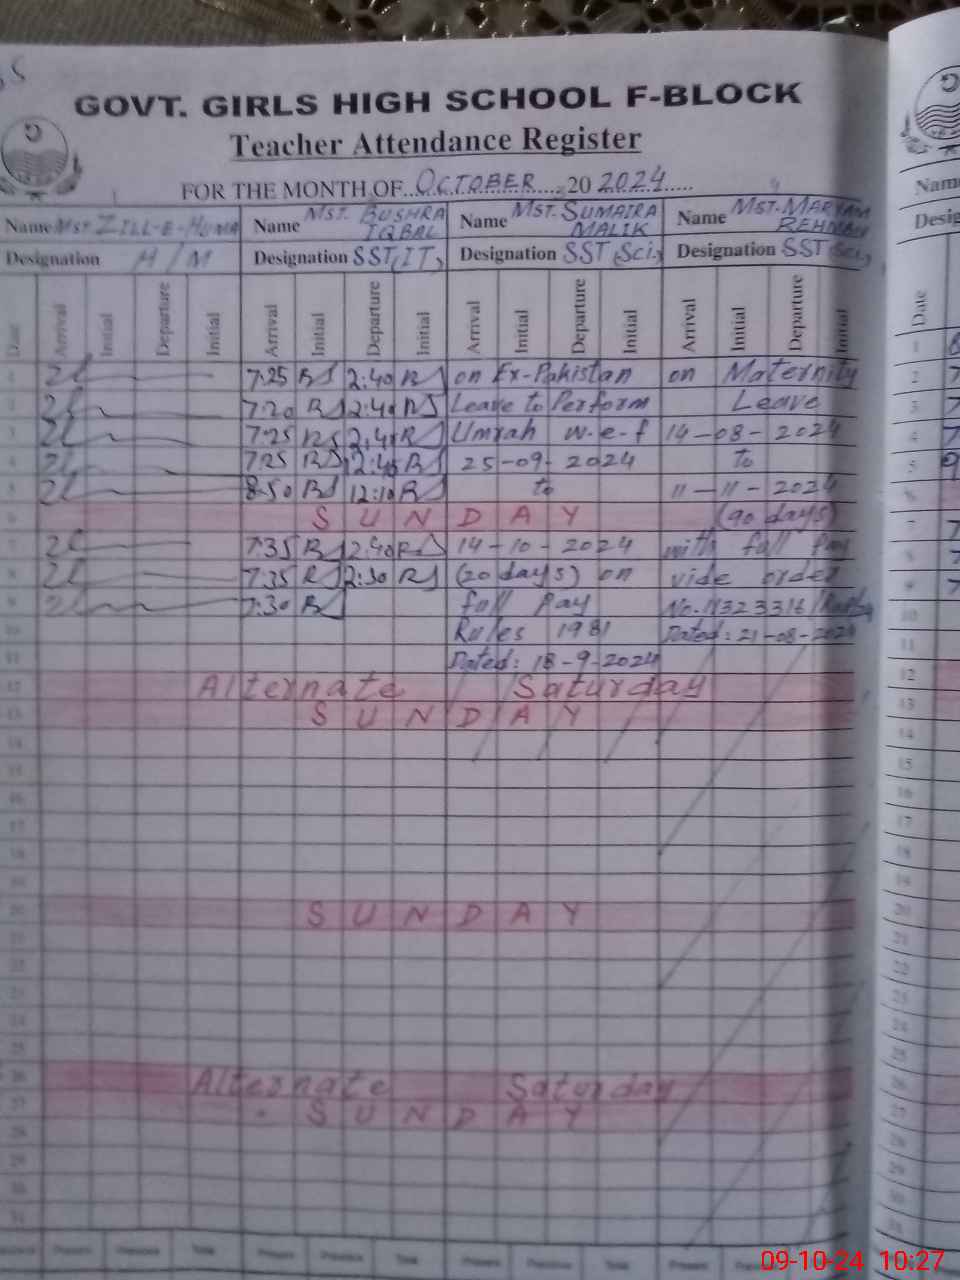 GOVT. GIRLS HIGH SCHOOL F-BLOCK
Teacher Attendance Register
FOR THE MONTH OF OCTOBER 20 2024
Name Mst. ZILL-E-HUMA Name MST. BUSHRA IQBAL Name MST. SUMAIRA MALIK Name MST. MARYAM REHMAN
Designation H/M Designation SST(IT) Designation SST(Sci.) Designation SST(Sci.)
Date Arrival Initial Departure Initial Arrival Initial Departure Initial Arrival Initial Departure Initial Arrival Initial Departure Initial Date
1 7:25 2:40 on Ex-Pakistan on Maternity 1
2 7:20 2:40 Leave to Perform Leave 2
3 7:25 2:40 Umrah w-e-f 14-08-2024 3
4 7:25 12:45 25-09-2024 to 4
5 8:50 12:10 to 11-11-2024 5
6 SUNDAY (90 days) 6
7 7:35 2:40 14-10-2024 with full Pay 7
8 7:35 2:30 (20 days) on vide order 8
9 7:30 full Pay No. 9
10 Rules 1981 Dated: 21-08-2024 10
11 Dated: 18-9-2024 11
12 Alternate Saturday 12
13 SUNDAY 13
14 14
15 15
16 16
17 17
18 18
19 19
20 SUNDAY 20
21 21
22 22
23 23
24 24
25 25
26 Alternate Saturday 26
27 SUNDAY 27
28 28
29 29
30 30
31 31
Present Previous Total Present Previous Total Present Previous Total Present Previous Total
09-10-24 10:27